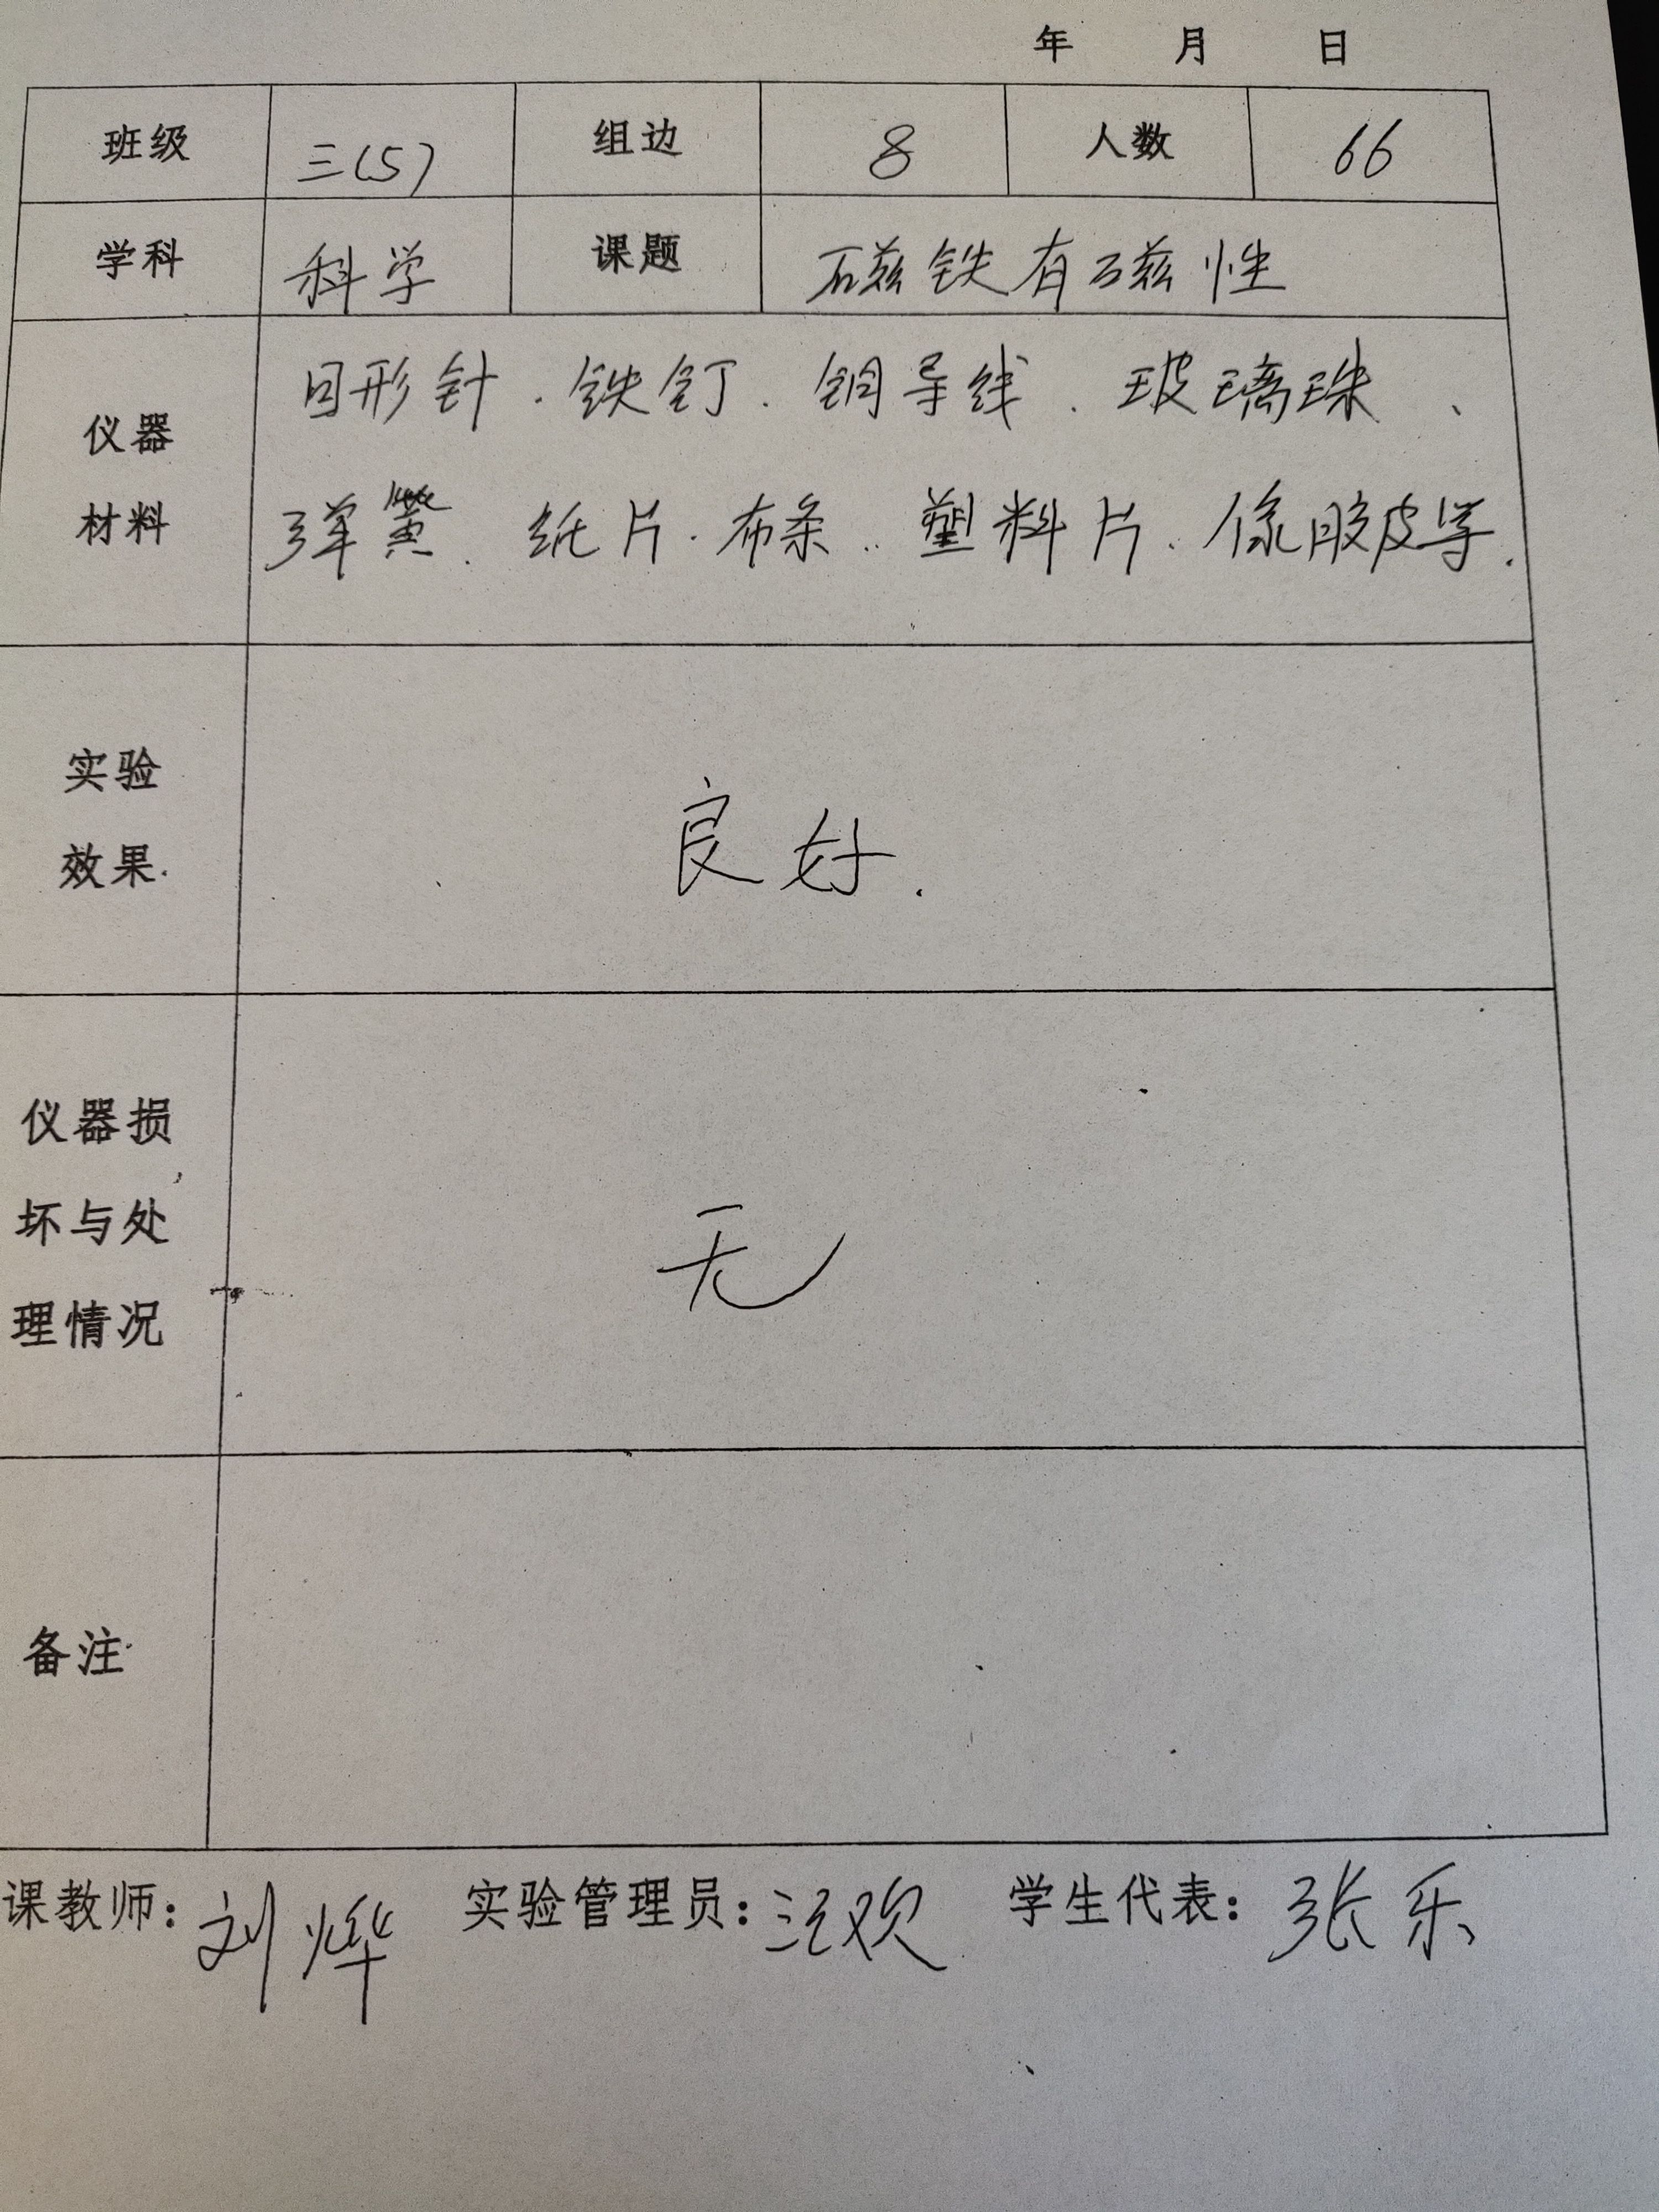 年 月 日
班级 三(5) 组边 8 人数 66
学科 科学 课题 磁铁有磁性
仪器
材料
回形针、铁钉、铜导线、玻璃珠、
弹簧、纸片、布条、塑料片、橡胶皮等.
实验
效果
良好.
仪器损
坏与处
理情况
无
备注
课教师: 刘烨 实验管理员: 汪欢 学生代表: 张乐